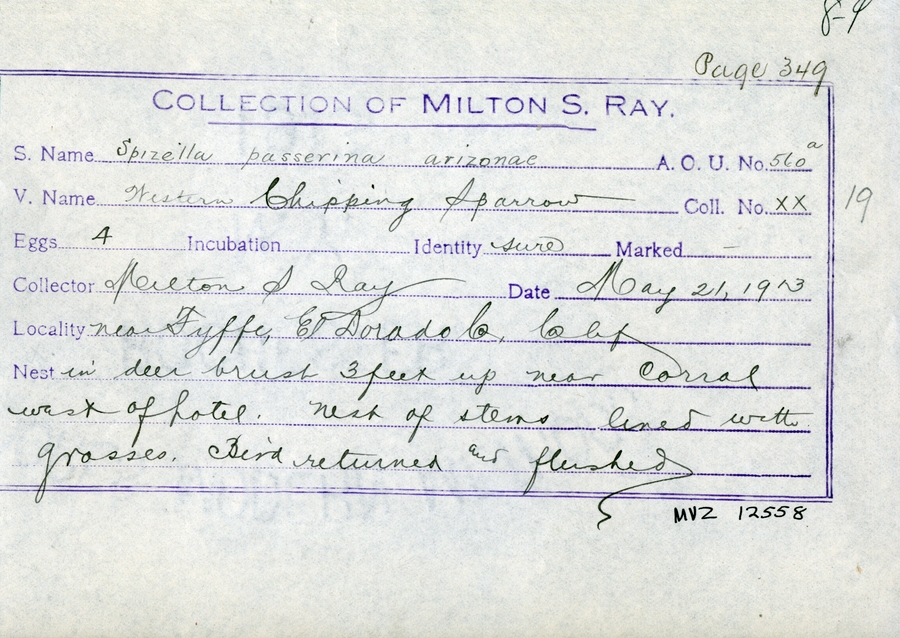 8-9
Page 349
COLLECTION OF MILTON S. RAY.
S. Name Spizella passerina arizonae A. O. U. No. 560a
V. Name Western Chipping Sparrow Coll. No. XX
19
Eggs 4 Incubation Identity sure Marked —
Collector Milton S Ray Date May 21, 1913
Locality near Fyffe, El Dorado Co, Calif
Nest in deer brush 3 feet up near Corral
west of hotel. nest of stems lined with
grasses. Bird returned and flushed
MVZ 12558